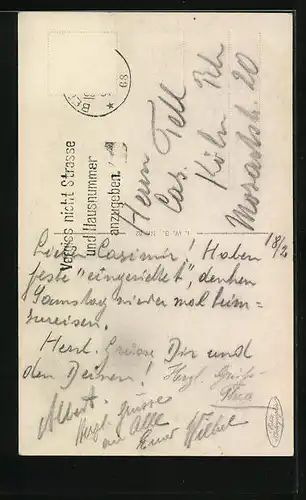 Vergiss nicht Strasse
und Hausnummer
anzugeben.
68
Herrn Tell
Cas.
Köln Rh
Mozartstr. 20
18/2
Lieber Casimir! Haben
feste "eingerichtet", denken
Samstag wieder mal heim-
zureisen.
Herzl. Grüsse Dir und
den Deinen!
Herzl. Grüsse
Albert.
Herzl. Grüsse
an Alle
Euer Willi